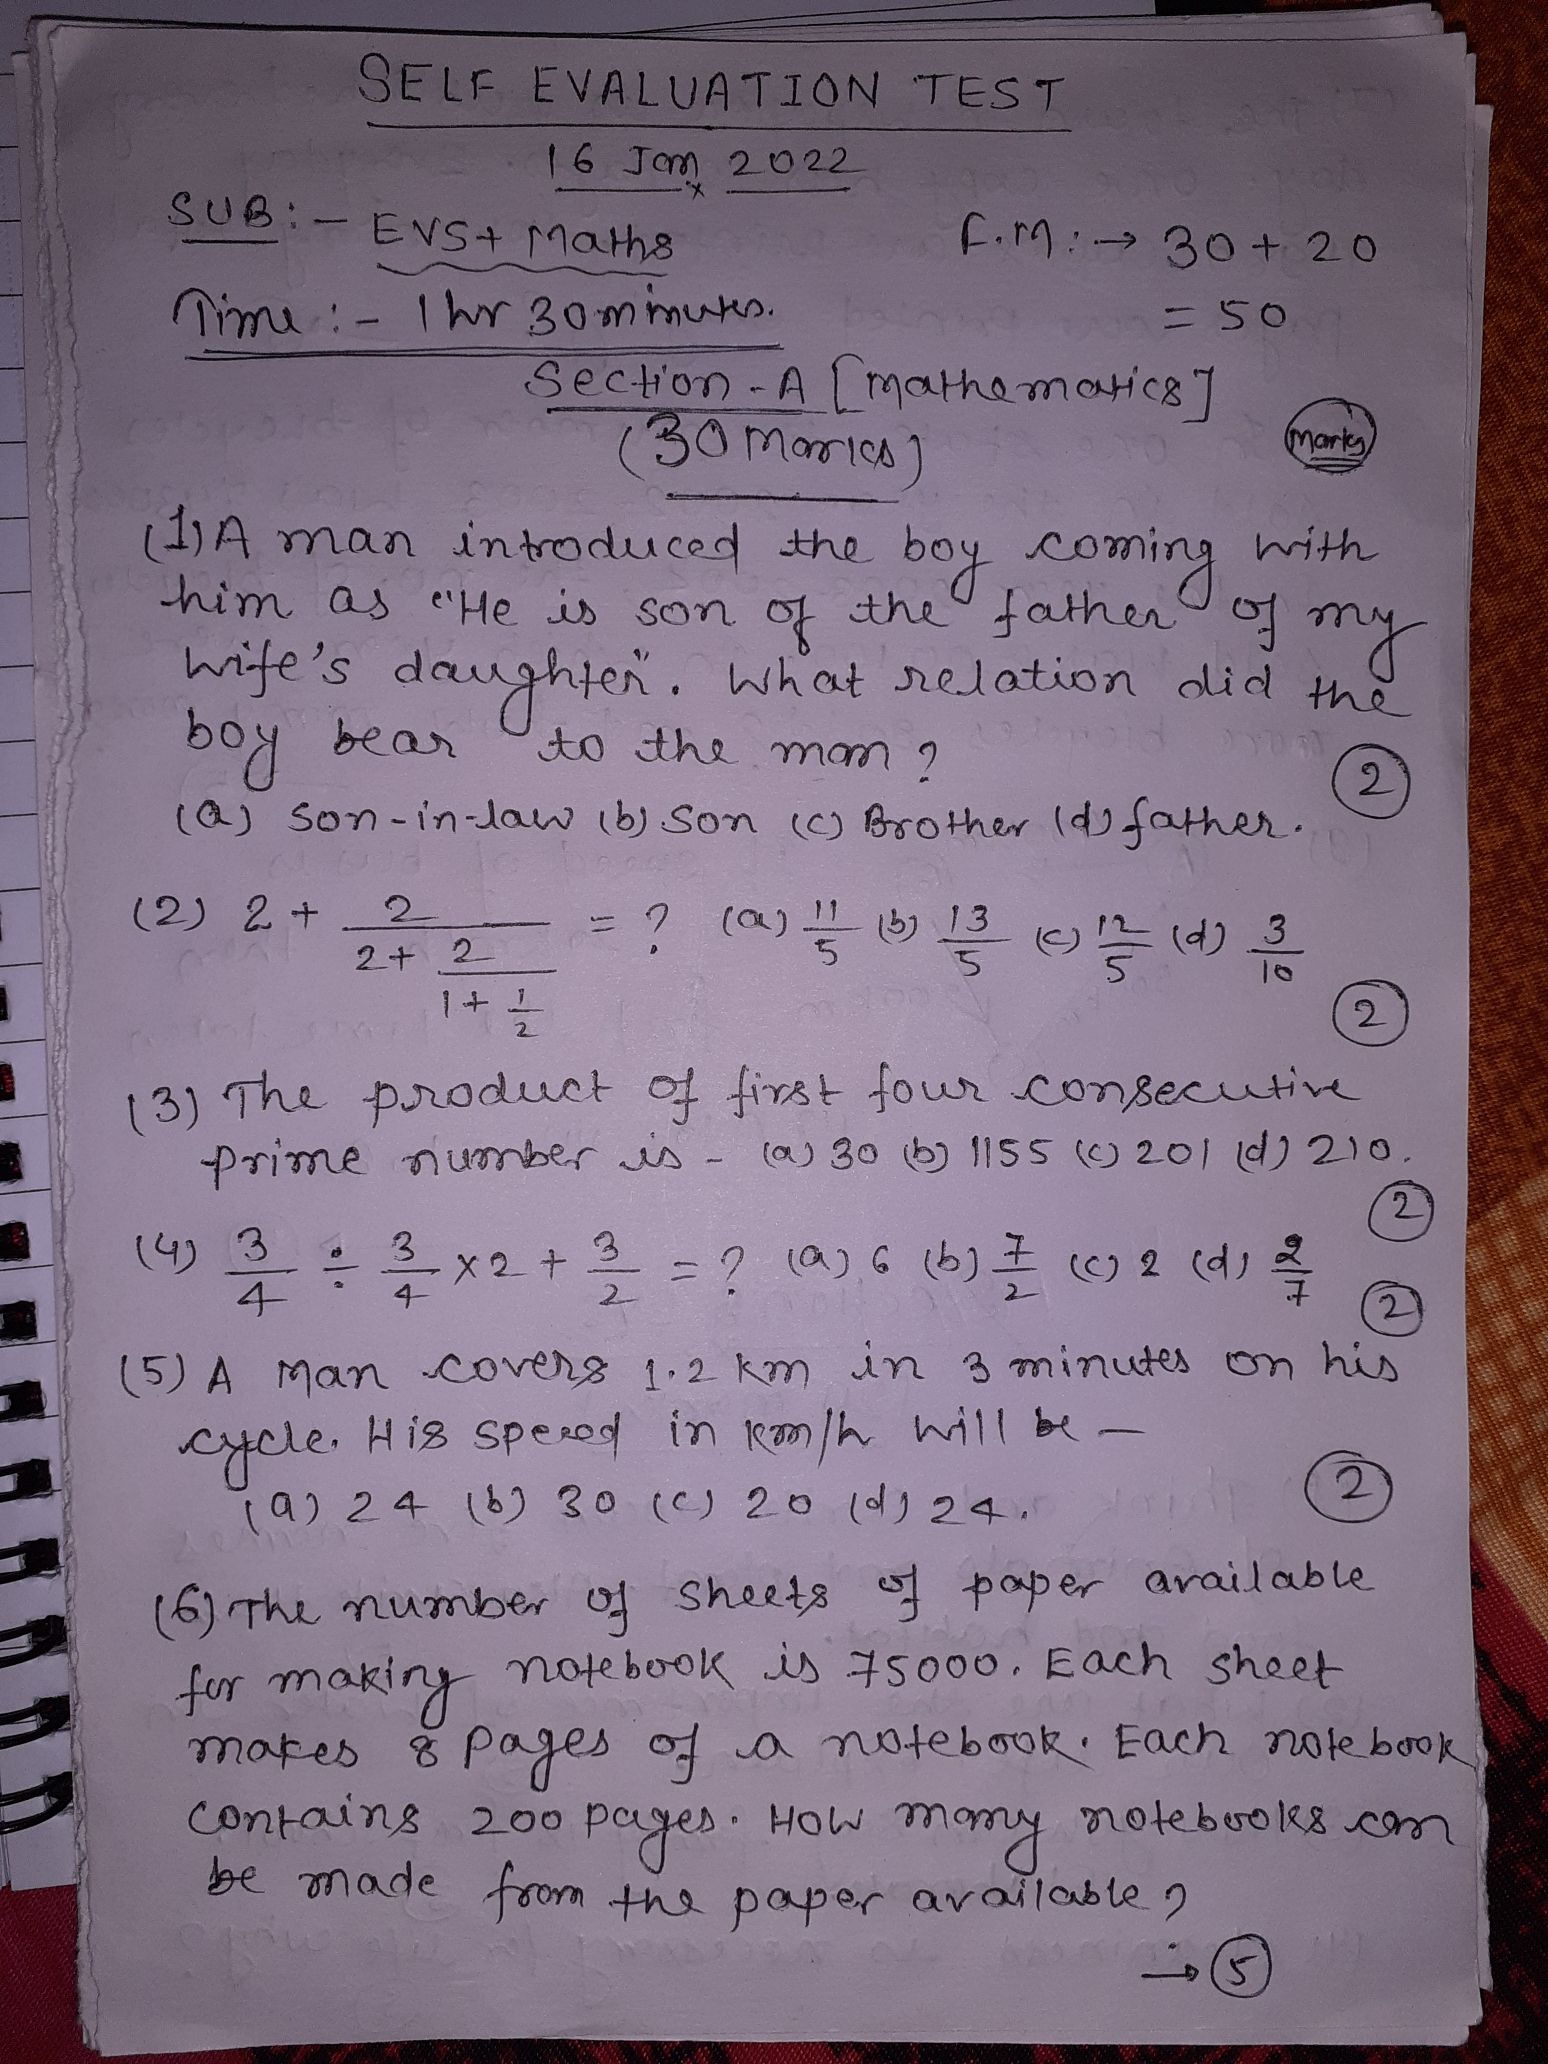 SELF EVALUATION TEST
16 Jan 2022
SUB:- EVS + Maths
F.M:→ 30 + 20
= 50
Time :- 1 hr 30 minutes.
Section - A [Mathematics]
(30 Marks)
Marks
(1) A man introduced the boy coming with
him as "He is son of the father of my
wife's daughter". What relation did the
boy bear to the man ?
2
(a) Son-in-law (b) Son (c) Brother (d) father.
(2) 2 + 2/(2 + 2/(1 + 1/2)) = ? (a) 11/5 (b) 13/5 (c) 12/5 (d) 3/10
2
(3) The product of first four consecutive
prime number is - (a) 30 (b) 1155 (c) 201 (d) 210.
2
(4) 3/4 ÷ 3/4 × 2 + 3/2 = ? (a) 6 (b) 7/2 (c) 2 (d) 2/7
2
(5) A Man covers 1.2 km in 3 minutes on his
cycle. His speed in km/h will be —
(a) 24 (b) 30 (c) 20 (d) 24.
2
(6) The number of sheets of paper available
for making notebook is 75000. Each sheet
makes 8 pages of a notebook. Each notebook
contains 200 pages. How many notebooks can
be made from the paper available ?
→ 5